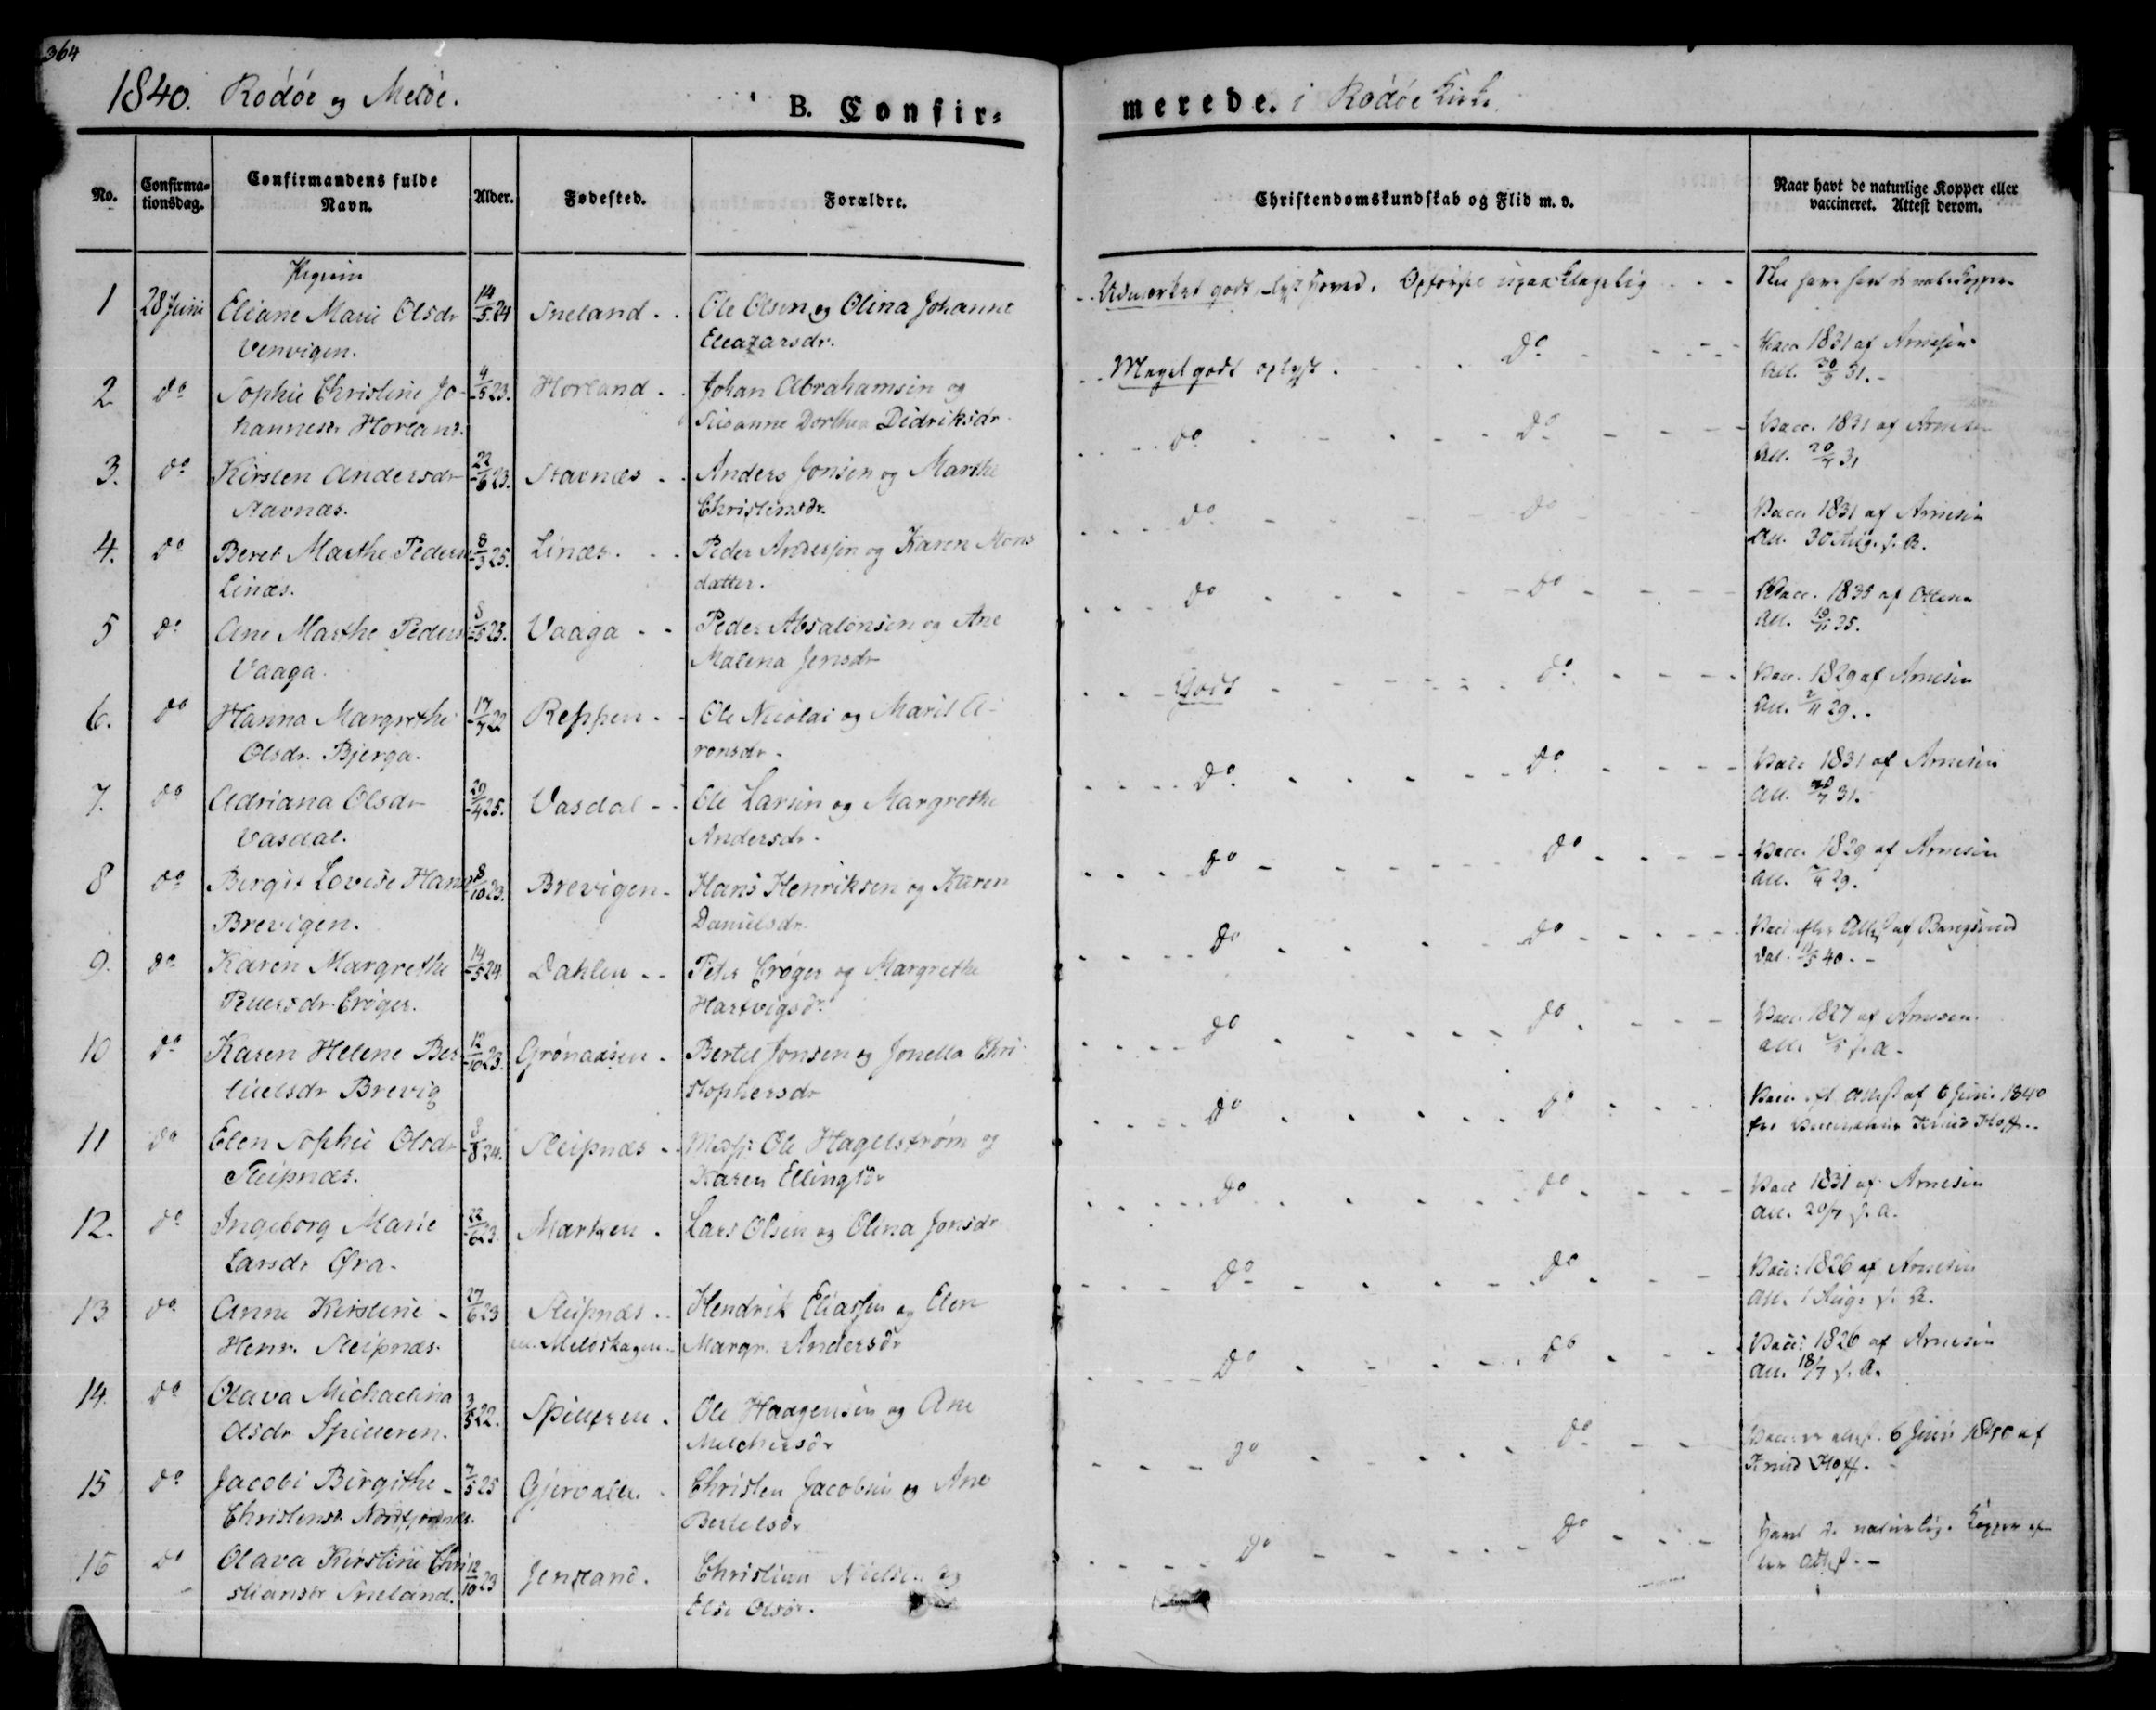 364
1840. Rödöe og Melöe. B. Confir-
merede. i Rödöe Kirke.
No. Confirma-tionsdag. Confirmandens fulde Navn. Alder. Fødested. Forældre.
Christendomskundskab og Flid m. v. Naar havt de naturlige Kopper eller vaccineret. Attest derom.
Pigerne
1 28 Juni Eliane Marie Olsdr 14/5 24 Sneland. Ole Olsen og Olina Johanne
Venvigen. Eleazarsdr.
Udmærket godt Opførsel upaaklagelig
2 do Sophie Christine Jo- 4/5 23. Horland. Johan Abrahamsen og
hannesdr Horland. Susanne Dorthea Didriksdr
Meget godt oplyst. Do Vacc 1831 af Arnesen
Att. 30/9 31.
3. do Kirsten Andersdr 22/6 23. Stavnæs Anders Jonsen og Marthe
Stavnæs. Christensdr.
do Do Vacc. 1831 af Arnesen
Att. 20/7 31
4. do Beret Marthe Pedersdr 8/3 25. Linæs. Peder Andersen og Karen Mons
Linæs. datter.
do do Vacc. 1831 af Arnesen
Att. 30 Aug. s. A.
5 do Ane Marthe Peders 8/5 23. Vaaga Peder Absalonsen og Ane
Vaaga. Malena Jensdr
do do Vacc. 1835 af Ottesen
Att. 19/11 35.
6. do Hanna Margrethe 17/7 22 Reppen Ole Nicolai og Marit A-
Olsdr. Bjerga. ronsdr.
Godt do Vacc. 1829 af Arnesen
Att. 2/11 29.
7. do Adriana Olsdr 20/4 25. Vasdal Ole Larsen og Margrethe
Vasdal. Andersdr.
Do Do Vacc 1831 af Arnesen
Att. 20/7 31.
8 do Birgit Lovise Hansdr 8/10 23. Brevigen Hans Henriksen og Karen
Brevigen. Danielsdr.
do do Vacc. 1829 af Arnesen
Att. 29.
9. do Karen Margrethe 14/5 24 Dahlen Peter Crøger og Margrethe
Petersdr. Crøger. Hartvigsdr.
do do Vacc efter Attest af
Dat. 11/5 40.
10 do Karen Helene Ber- 12/10 23. Grønaasen Bertel Jonsen og Jonella Chri-
tuelsdr Brevig stophersdr
do do Vacc. 1827 af Arnesen
Att. s. A.
11 do Elen Sophie Olsdr 8/8 24. Sleipnæs Ole Hagelstrøm og
Sleipnæs. Karen Ellingsdr
do do Vacc. Attest af 6 Juni 1840
fra Vaccinateur Knud Hoff.
12. do Ingeborg Marie 22/6 23. Marken. Lars Olsen og Olina Jonsdr
Larsdr Øra.
do do Vacc 1831 af Arnesen
Att. 20/7 s. A.
13 do Anne Kirstine 27/6 23 Sleipnæs Hendrik Eliassen og Elen
Henr. Sleipnæs. Meløskagen Margr. Andersdr
do do Vacc: 1826 af Arnesen
Att. 1 Aug. s. A.
14. do Olava Michaelina 3/5 22. Spilleren. Ole Haagensen og Ane
Olsdr Spilleren. Melchersdr
do do Vacc: 1826 af Arnesen
Att. 18/7 s. A.
15 do Jacobi Birgithe 7/5 25 Gjervalen. Christen Jacobsen og Ane
Christensdr Bertelsdr
do do 6 Juni 1840 af
Knud Hoff.
16 do Olava Kirstine Chri 12/10 23 Jensland. Christian Nielsen og
stiansdr Sneland. Else Olsdr.
do do havt de naturlige Kopper ef-
ter Attest.